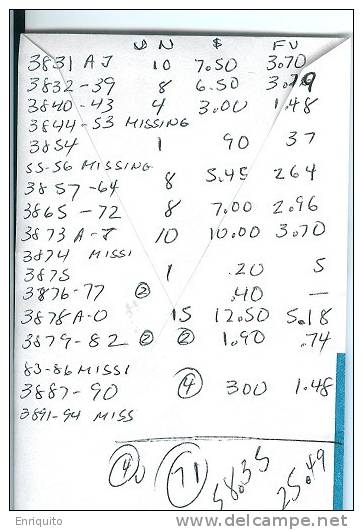 U N $ FV
3831 AJ 10 7.50 3.70
3832-39 8 6.50 3.19
3840-43 4 3.00 1.48
3844-53 MISSING
3854 1 90 37
55-56 MISSING
3857-64 8 5.45 264
3865-72 8 7.00 2.96
3873 A-J 10 10.00 3.70
3874 MISSI
3875 1 .20 5
3876-77 ② .40 —
3878 A-O 15 12.50 5.18
3879-82 ② ② 1.90 .74
83-86 MISSI
3887-90 ④ 300 1.48
3891-94 MISS
71 58.35 25.49
Enriquito
delcampe.net